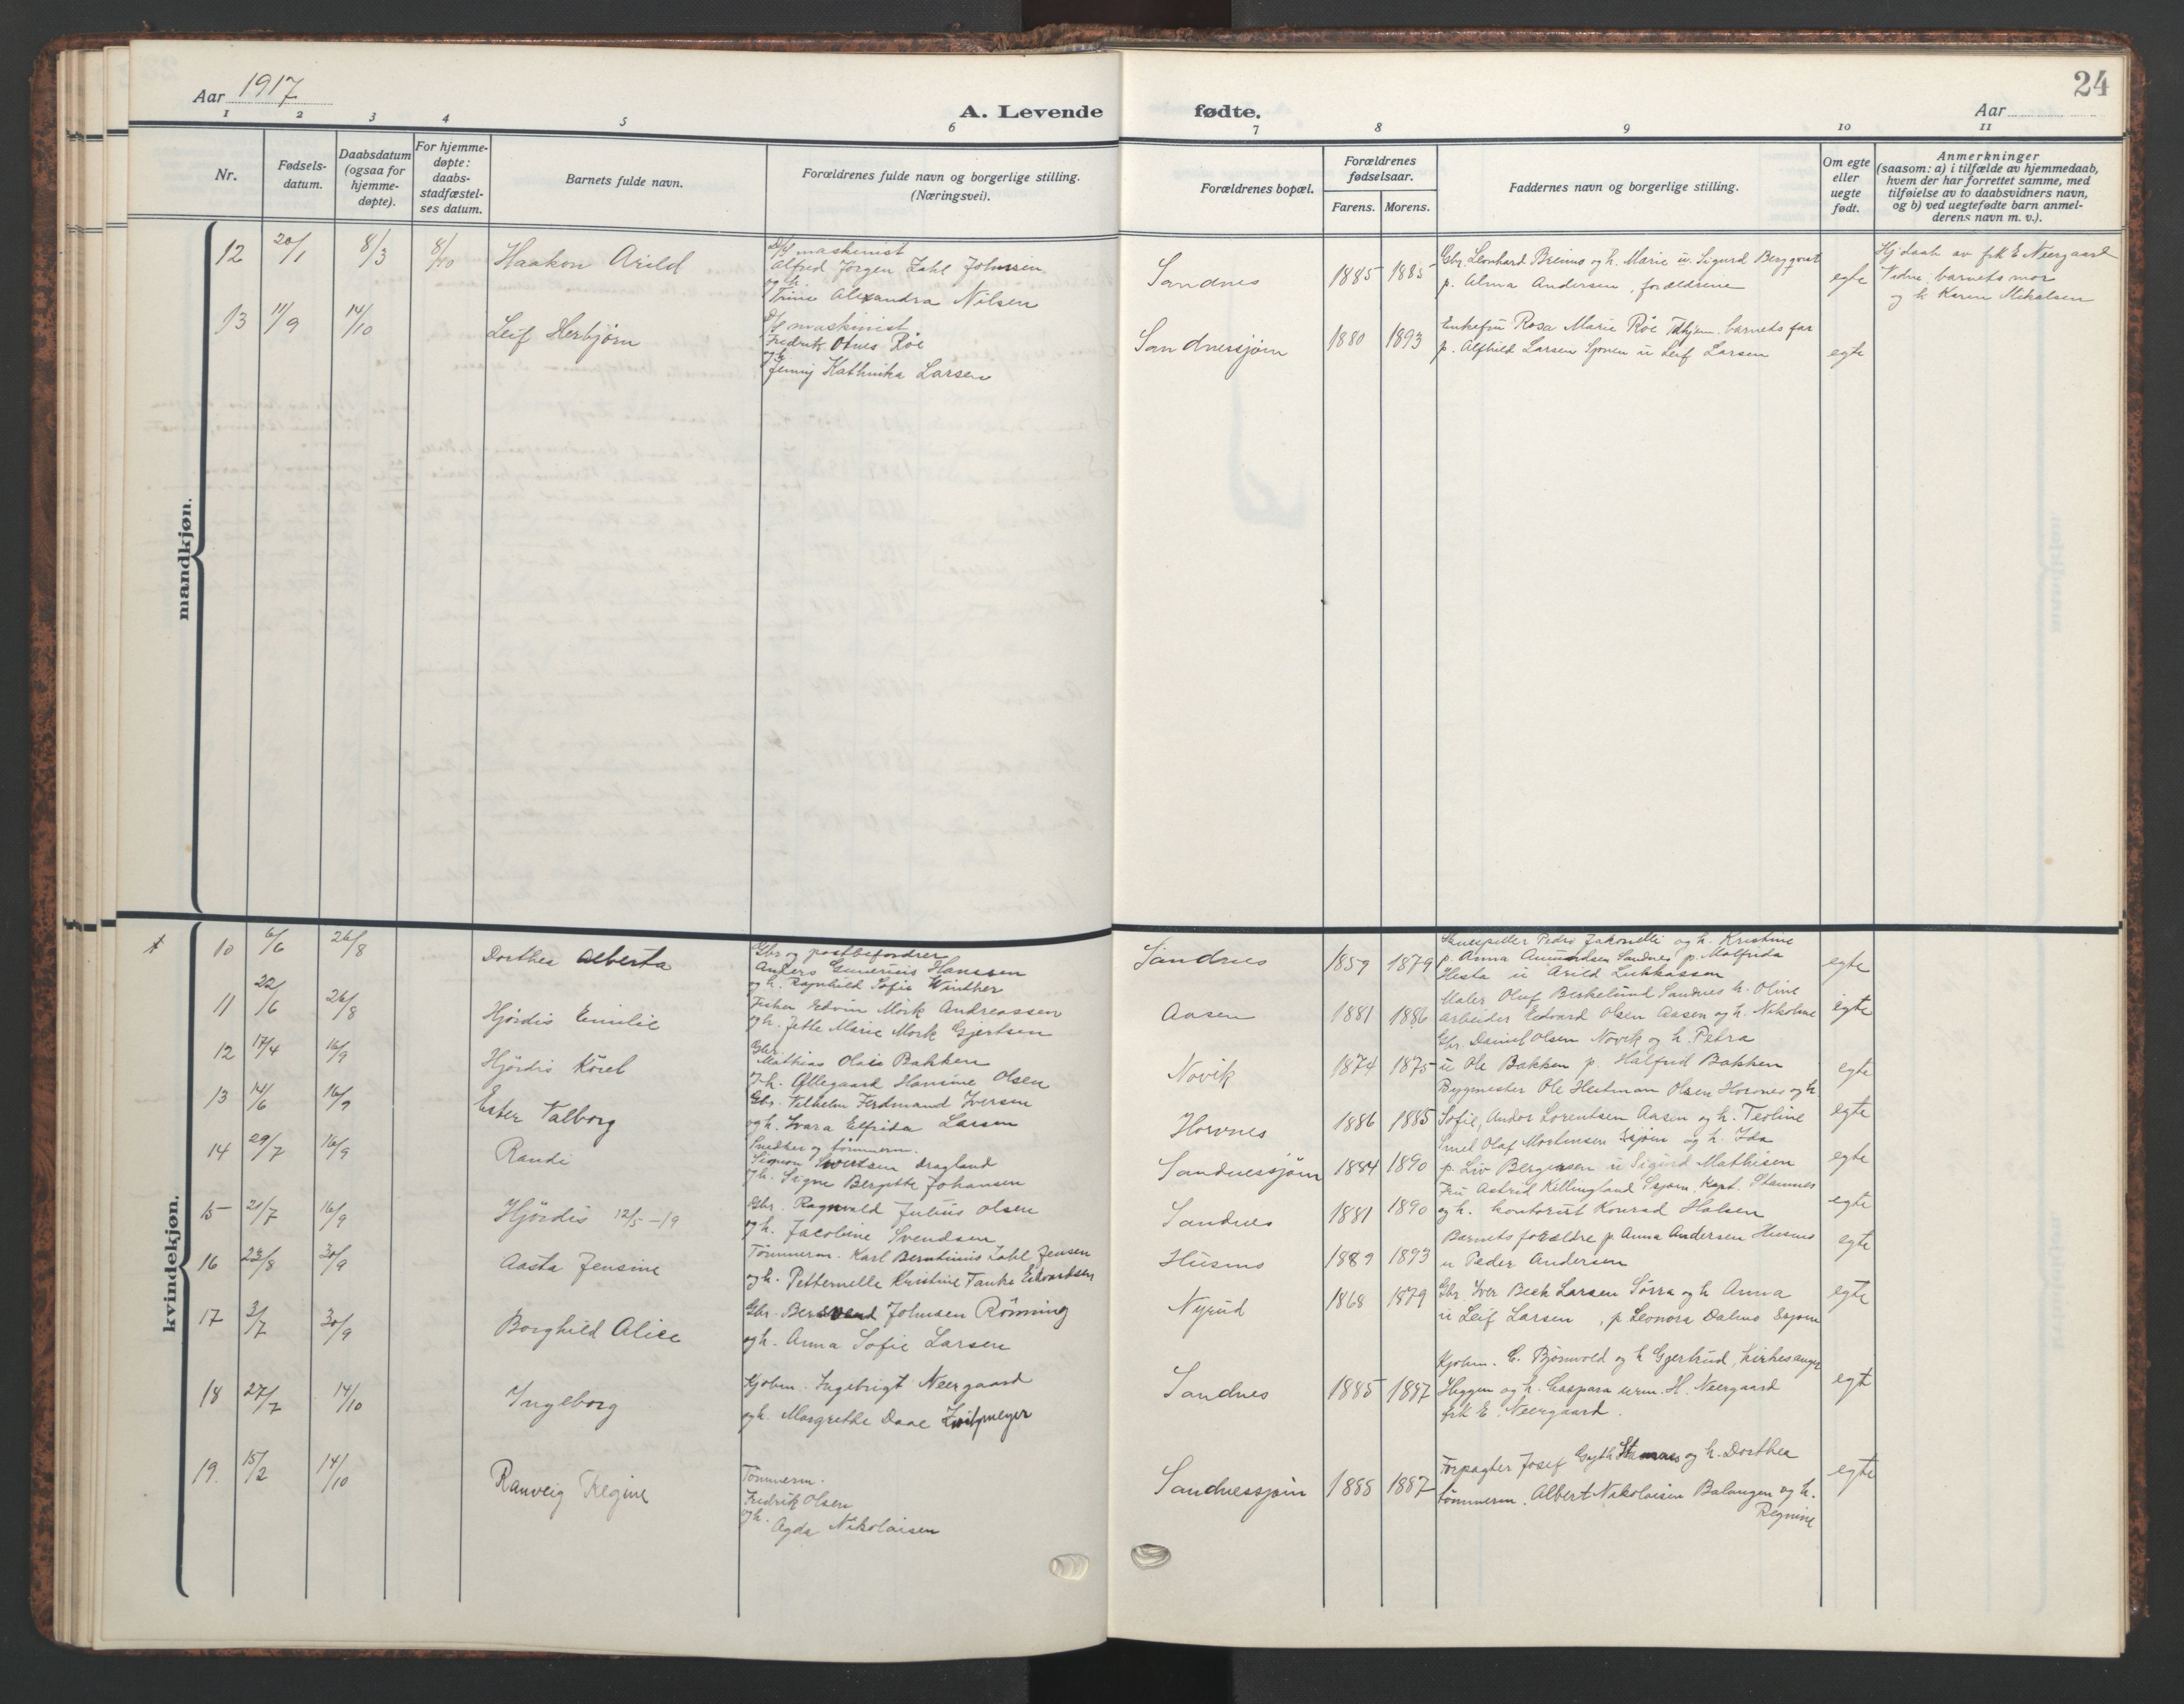 Aar 1917
A. Levende fødte.
24
Aar
1 2 3 4 5 6 7 8 9 10 11
Nr.
Fødsels-
datum.
Daabsdatum
(ogsaa for
hjemme-
døpte).
For hjemme-
døpte:
daabs-
stadfæstel-
ses datum.
Barnets fulde navn.
Forældrenes fulde navn og borgerlige stilling.
(Næringsvei).
Forældrenes bopæl.
Forældrenes
fødselsaar.
Farens. Morens.
Faddernes navn og borgerlige stilling.
Om egte
eller
uegte
født.
Anmerkninger
(saasom: a) i tilfælde av hjemmedaab,
hvem der har forrettet samme, med
tilføielse av to daabsvidners navn,
og b) ved uegtefødte barn anmel-
derens navn m. v.).
mandkjøn.
12 20/1 8/3 8/10 Haakon Arild
D/s maskinist
Alfred Jørgen Zahl Johnsen
og h.
Trine Alexandra Nilsen
Sandnes 1885 1885
Gbr. Leonhard Breimo og h. Marie u. Sigurd Bergqvist
p. Alma Andersen, forældrene
egte
Hj daab av frk E Neergaard
Vidne: barnets mor
og h Karen Mikalsen
13 11/9 14/10 Leif Herbjørn
D/s maskinist
Fredrik Otnes Röe
og h
Jenny Kathinka Larsen
Sandnessjøen 1880 1893
Enkefru Rosa Marie Röe barnets far
p. Alfhild Larsen Spjøen u Leif Larsen
egte
kvindekjøn.
10 6/6 26/8 Dorthea Alberta
Gbr og postbefordrer
Anders Gunerius Hanssen
og h. Ragnhild Sofie Winther
Sandnes 1859 1879
Pedro og h. Kristine
p. Anna Amundsen Sandnes p. Malfrida
Hesta u Arild Lukkassen
egte
11 22/6 26/8 Hjördis Emilie
Fisker Edvin Mörk Andreassen
og h. Jette Marie Mörk Gjertsen
Aasen 1881 1886
Maler Oluf Birkelund Sandnes h. Oline
Arbeider Edvard Olsen Aasen og h. Nikoline
egte
12 17/4 16/9 Hjördis Körel
Gbr.
Mathias Olais Bakken
og h. Öllegaard Hansine Olsen
Novik 1874 1875
Gbr. Daniel Olsen Novik og h. Petra
u Ole Bakken p. Halfrid Bakken
egte
13 14/6 16/9 Ester Valborg
Gbr. Vilhelm Ferdinand Iversen
og h. Ivara Elfrida Larsen
Horvnes 1886 1885
Bygmester Ole Heitman Olsen Horvnes og h
Sofie, Andor Lorentsen Aasen og h. Teoline
egte
14 29/7 16/9 Randi
Snedker og tömmerm.
Simon Sivertsen Dragland
og h. Signe Bergitte Johansen
Sandnessjøen 1884 1890
Smed Olaf Mortensen Ssjøen og h. Ida
p. Liv Bergersen u Sigurd Mathisen
egte
15 21/7 16/9 Hjördis 12/5 - 19
Gbr. Ragnvald Julius Olsen
og h. Jacobine Svendsen
Sandnes 1881 1890
Fru Astrid Killingland Ssjøen. Kapt. Stamnes
og h. kontorist Konrad Halsen
egte
16 23/8 30/9 Aasta Jensine
Tömmerm. Karl Berntinius Zahl Jensen
og h. Petternelle Kristine Tanke Edvardsen
Husmo 1889 1893
Barnets forældre p Anna Andersen Husmo
u Peder Andersen
egte
17 3/7 30/9 Borghild Alice
Gbr. Bersvend Johnsen Rönning
og h. Anna Sofie Larsen
Nyrud 1868 1879
Gbr Iver Beck Larsen Sörra og h Anna
u Leif Larsen, p Leonora Dalmo Ssjøen
egte
18 27/7 14/10 Ingeborg
Kjöbm. Ingebrigt Neergaard
og h. Margrethe Daae Zwilgmeyer
Sandnes 1885 1887
Kjøbm. C. Bjørnvold og h Gjertrud, kirkesanger
Heggen og h. Caspara urm. H. Neergaard
frk E. Neergaard.
egt
19. 15/2 14/10 Ranveig Regine
Tömmerm.
Fredrik Olsen
og h.
Agda Nikolaisen
Sandnessjøen 1888 1887
Forpagter Josef Gyth Stamnes og h. Dorthea
tömmerm. Albert Nikolaisen Balangen og h.
Regnine
egte